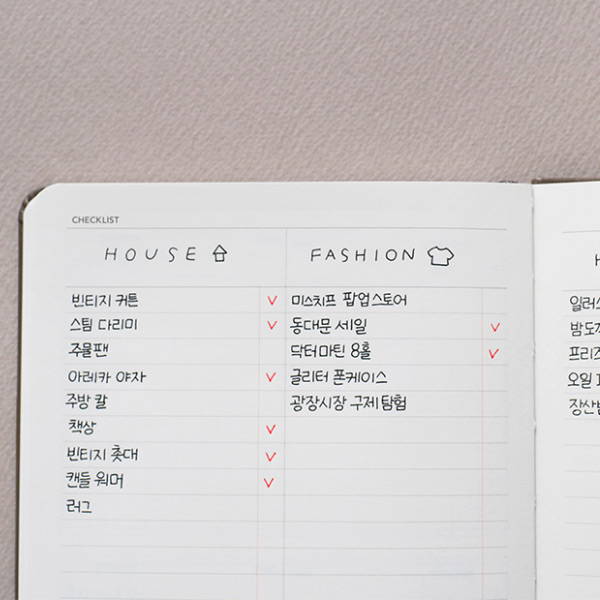 CHECKLIST
HOUSE
빈티지 커튼 V
스팀 다리미 V
주물팬
아레카 야자 V
주방 칼
책상 V
빈티지 촛대 V
캔들 워머 V
러그
FASHION
미스치프 팝업스토어
동대문 세일 V
닥터마틴 8홀 V
글리터 폰케이스
광장시장 구제 탐험
오일